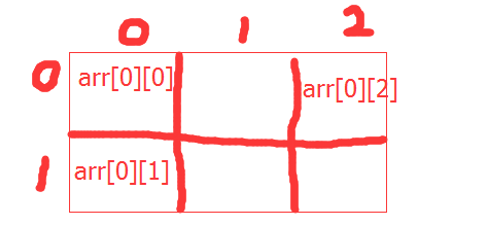 0 1 2
0 arr[0][0] arr[0][2]
1 arr[0][1]